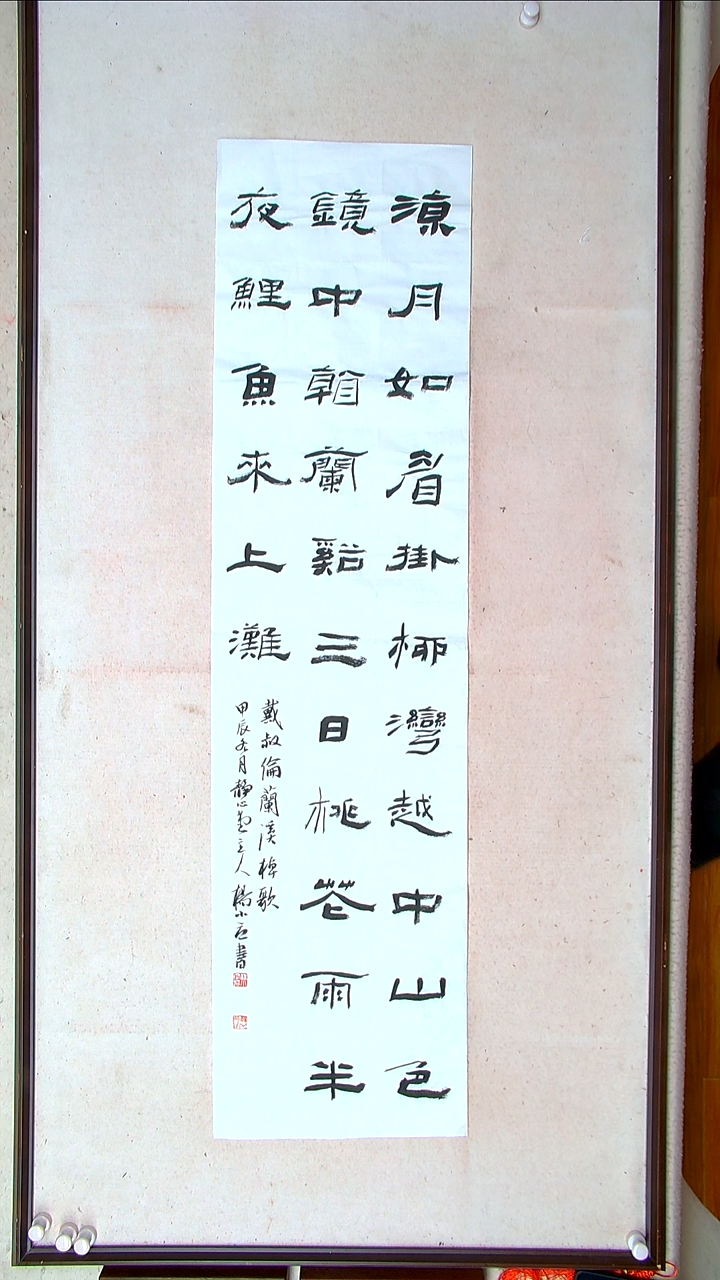 涼月如眉掛柳灣越中山色
鏡中看蘭谿三日桃花雨半
夜鯉魚來上灘
戴叔倫蘭溪棹歌
甲辰冬月靜心主人楊小書